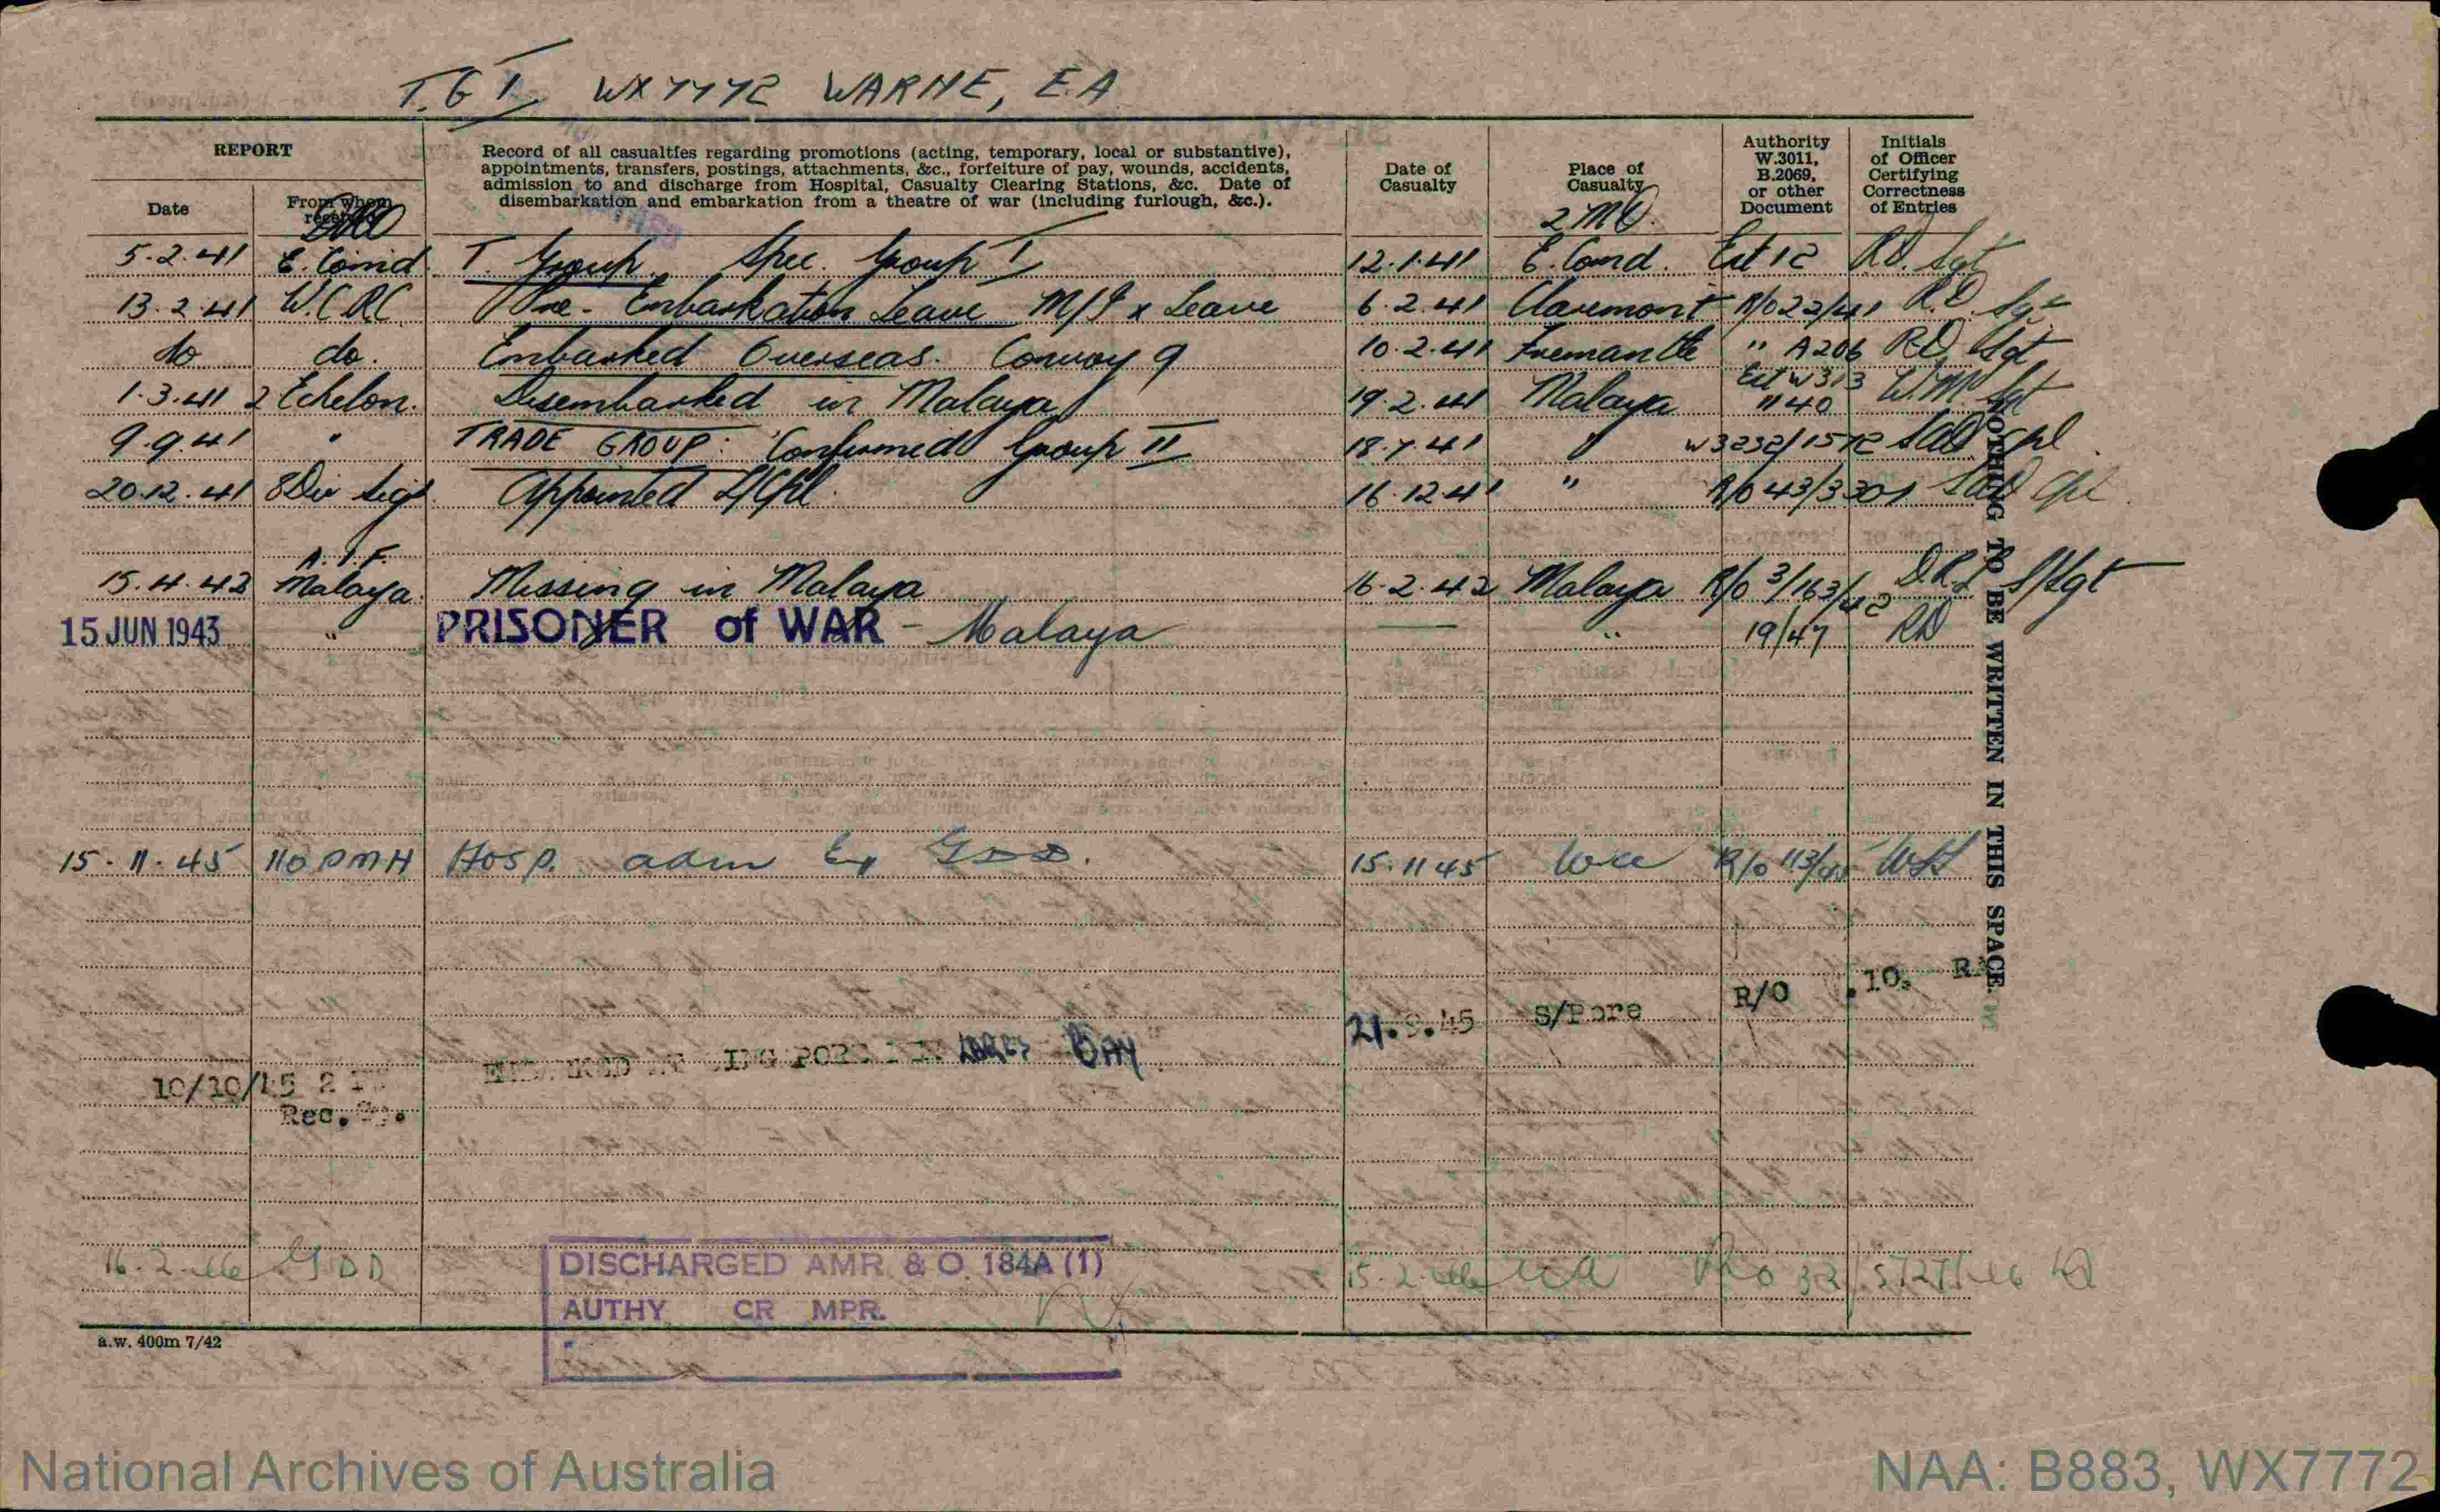 T.G I WX7772 WARNE, E.A
REPORT
Date
From whom received
Record of all casualties regarding promotions (acting, temporary, local or substantive),
appointments, transfers, postings, attachments, &c., forfeiture of pay, wounds, accidents,
admission to and discharge from Hospital, Casualty Clearing Stations, &c. Date of
disembarkation and embarkation from a theatre of war (including furlough, &c.).
Date of
Casualty
Place of
Casualty
Authority
W.3011,
B.2069,
or other
Document
Initials
of Officer
Certifying
Correctness
of Entries
5.2.41 E. Comd. T. Group. Spec. Group I 12.1.41 E. Comd. Sgt
13.2.41 W.C.R.C. Pre-Embarkation Leave Leave 6.2.41 Claremont R/O 22/41 R.D. Sgt
do do. Embarked Overseas. Convoy 9 10.2.41 Fremantle " A206 RD Sgt
1.3.41 2 Echelon. Disembarked in Malaya 19.2.41 Malaya W313 "40 W.M. Sgt
9.9.41 " TRADE GROUP: Confirmed Group II 18.7.41 " W3232/1572 Cpl
20.12.41 8 Div Sigs. Appointed L/Cpl. 16.12.41 " R/O 43/3301 Cpl
15.4.42 A.I.F. Malaya. Missing in Malaya 16.2.42 Malaya R/O 3/163/42 S/Sgt
15 JUN 1943 " PRISONER of WAR - Malaya — " 19/47 RD
15.11.45 110 PMH Hosp. adm Ex GDD. 15.11.45 R/O 113/45
21.9.45 S/Pore R/O .10.
BAY
10/10/45 2
Rec.
16.2.46 GDD
DISCHARGED AMR & O 184A (1) 15.2.46 WA
AUTHY CR MPR.
NOTHING TO BE WRITTEN IN THIS SPACE.
a.w. 400m 7/42
National Archives of Australia
NAA: B883, WX7772